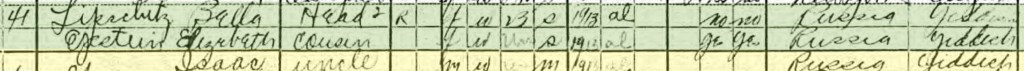 41 Lipschutz Bella Head 2 R f w 23 s 1913 al no no Russia Yiddish
Epstein Elizabeth Cousin f w s 1913 al Russia Yiddish
Isaac uncle m w m Russia Yiddish